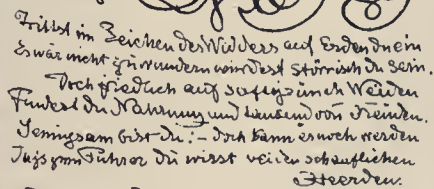 Trittst im Zeichen des Widders auf Erden du ein
Es wär nicht zu wundern würdest störrisch du sein.
Doch friedlich auf saftig Weiden
Findest du Nahrung und von Feinden.
Genügsam bist du! – doch kann er noch werden
zum Führer du wirst schauflichen
Heerden.